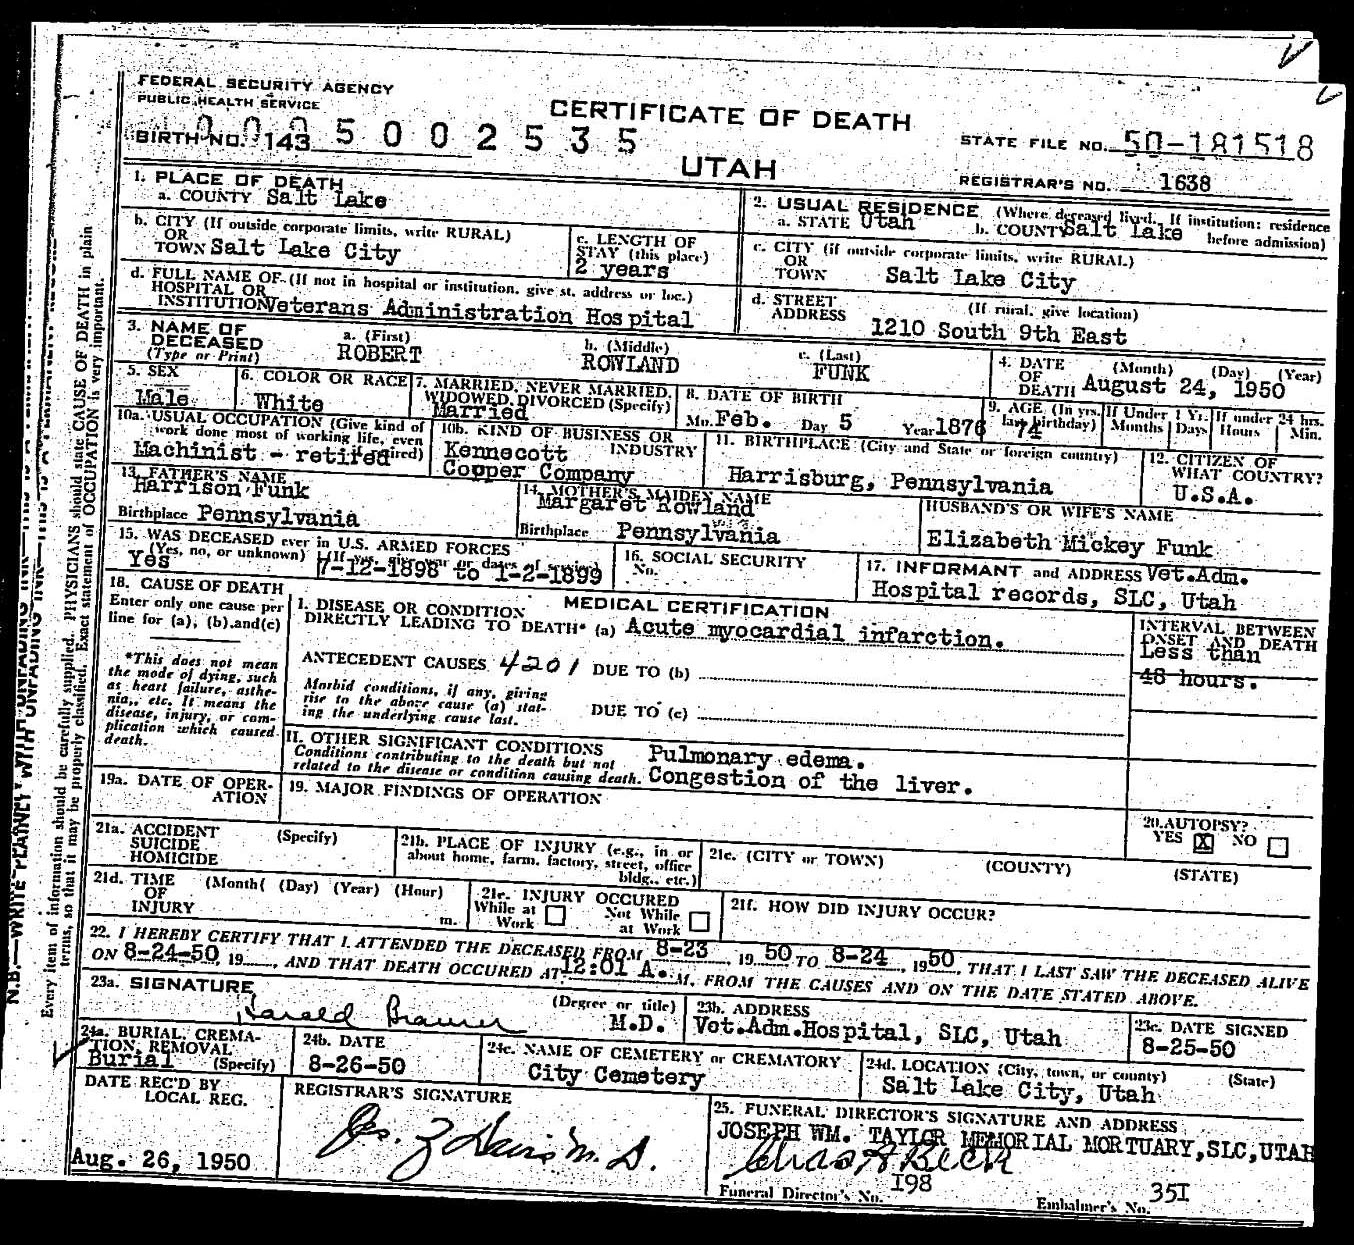 FEDERAL SECURITY AGENCY
PUBLIC HEALTH SERVICE
CERTIFICATE OF DEATH
BIRTH NO. 143 5 0 0 2 5 3 5
UTAH
STATE FILE NO. 50-181518
REGISTRAR'S NO. 1638
1. PLACE OF DEATH
a. COUNTY Salt Lake
2. USUAL RESIDENCE (Where deceased lived. If institution: residence before admission)
a. STATE Utah b. COUNTY Salt Lake
b. CITY (If outside corporate limits, write RURAL)
OR
TOWN Salt Lake City
c. LENGTH OF STAY (this place)
2 years
c. CITY (if outside corporate limits, write RURAL)
OR
TOWN Salt Lake City
d. FULL NAME OF (If not in hospital or institution, give st. address or loc.)
HOSPITAL OR
INSTITUTION Veterans Administration Hospital
d. STREET (If rural, give location)
ADDRESS 1210 South 9th East
3. NAME OF DECEASED (Type or Print)
a. (First) b. (Middle) c. (Last)
ROBERT ROWLAND FUNK
4. DATE OF DEATH (Month) (Day) (Year)
August 24, 1950
5. SEX
Male
6. COLOR OR RACE
White
7. MARRIED, NEVER MARRIED, WIDOWED, DIVORCED (Specify)
Married
8. DATE OF BIRTH
Mo. Feb. Day 5 Year 1876
9. AGE (In yrs. last birthday)
74
If Under 1 Yr. Months Days
If under 24 hrs. Hours Min.
10a. USUAL OCCUPATION (Give kind of work done most of working life, even if retired)
Machinist - retired
10b. KIND OF BUSINESS OR INDUSTRY
Kennecott
Copper Company
11. BIRTHPLACE (City and State or foreign country)
Harrisburg, Pennsylvania
12. CITIZEN OF WHAT COUNTRY?
U.S.A.
13. FATHER'S NAME
Harrison Funk
Birthplace Pennsylvania
14. MOTHER'S MAIDEN NAME
Margaret Rowland
Birthplace Pennsylvania
HUSBAND'S OR WIFE'S NAME
Elizabeth Mickey Funk
15. WAS DECEASED ever in U.S. ARMED FORCES
(Yes, no, or unknown) (If yes, give war or dates of service)
Yes 7-12-1898 to 1-2-1899
16. SOCIAL SECURITY
No.
17. INFORMANT and ADDRESS Vet.Adm.
Hospital records, SLC, Utah
18. CAUSE OF DEATH
Enter only one cause per line for (a), (b).and(c)
*This does not mean the mode of dying, such as heart failure, asthenia,, etc. It means the disease, injury, or complication which caused death.
MEDICAL CERTIFICATION
I. DISEASE OR CONDITION
DIRECTLY LEADING TO DEATH* (a) Acute myocardial infarction.
INTERVAL BETWEEN ONSET AND DEATH
Less than
48 hours.
ANTECEDENT CAUSES 4201 DUE TO (b)
Morbid conditions, if any, giving rise to the above cause (a) stating the underlying cause last.
DUE TO (c)
II. OTHER SIGNIFICANT CONDITIONS
Conditions contributing to the death but not related to the disease or condition causing death.
Pulmonary edema.
Congestion of the liver.
19a. DATE OF OPERATION
19. MAJOR FINDINGS OF OPERATION
20. AUTOPSY?
YES X NO
21a. ACCIDENT SUICIDE HOMICIDE (Specify)
21b. PLACE OF INJURY (e.g., in or about home, farm, factory, street, office bldg., etc.)
21c. (CITY or TOWN) (COUNTY) (STATE)
21d. TIME OF INJURY (Month( (Day) (Year) (Hour) m.
21e. INJURY OCCURED
While at Work Not While at Work
21f. HOW DID INJURY OCCUR?
22. I HEREBY CERTIFY THAT I ATTENDED THE DECEASED FROM 8-23, 19 50 TO 8-24, 1950, THAT I LAST SAW THE DECEASED ALIVE
ON 8-24-50, 19, AND THAT DEATH OCCURED AT 12:01 A. M, FROM THE CAUSES AND ON THE DATE STATED ABOVE.
23a. SIGNATURE (Degree or title)
Harold M.D.
23b. ADDRESS
Vet.Adm.Hospital, SLC, Utah
23c. DATE SIGNED
8-25-50
24a. BURIAL, CREMATION, REMOVAL (Specify)
Burial
24b. DATE
8-26-50
24c. NAME OF CEMETERY or CREMATORY
City Cemetery
24d. LOCATION (City, town, or county) (State)
Salt Lake City, Utah
DATE REC'D BY LOCAL REG.
Aug. 26, 1950
REGISTRAR'S SIGNATURE
M. D.
25. FUNERAL DIRECTOR'S SIGNATURE AND ADDRESS
JOSEPH WM. TAYLOR MEMORIAL MORTUARY, SLC, UTAH
Chas A Beck
Funeral Director's No. 198
Embalmer's No. 351
Every item of information should be carefully supplied. PHYSICIANS should state CAUSE OF DEATH in plain
terms, so that it may be properly classified. Exact statement of OCCUPATION is very important.
N.B.—WRITE PLAINLY WITH UNFADING INK—THIS IS A PERMANENT